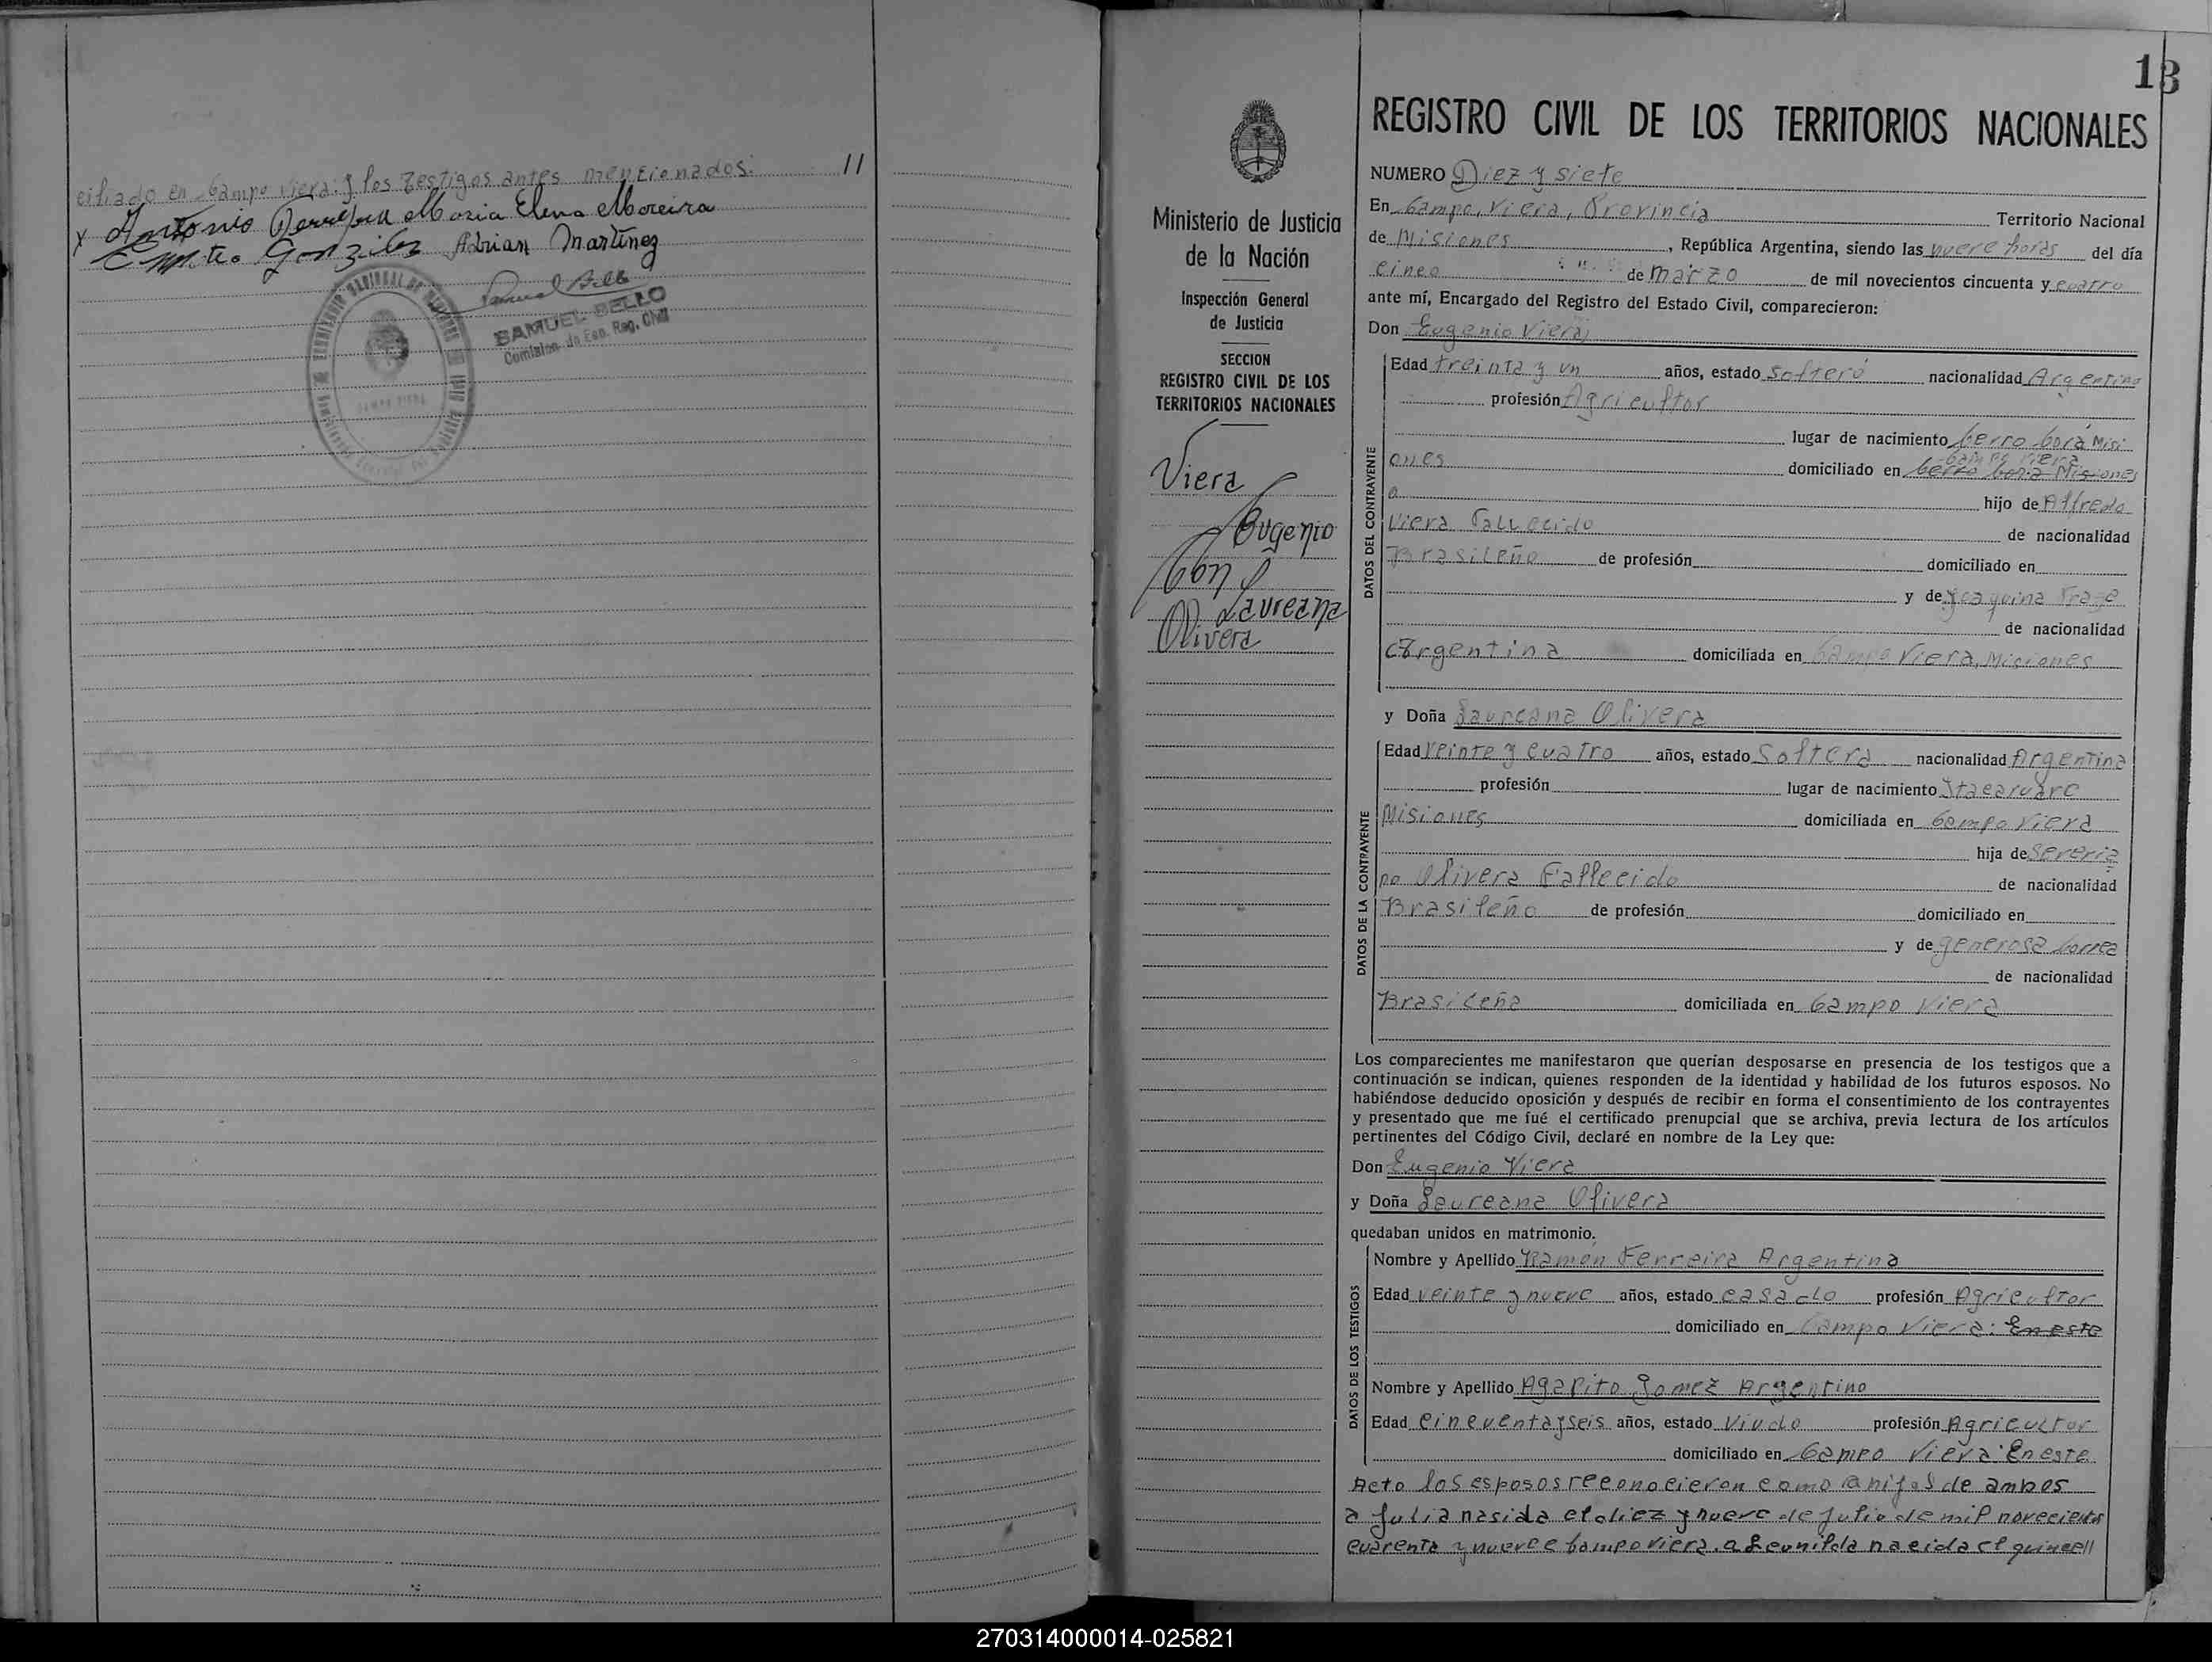 ciliado en Campo Viera: y los testigos antes mencionados: 11
x Antonio Maria Elena Moreira
x Gonzilez Adrian Martinez
SAMUEL BELLO
CAMPO VIERA
13
REGISTRO CIVIL DE LOS TERRITORIOS NACIONALES
Ministerio de Justicia
de la Nación
Inspección General
de Justicia
SECCION
REGISTRO CIVIL DE LOS
TERRITORIOS NACIONALES
Viera
Eugenio
Con
Laureana
Olivera
NUMERO Diez y siete
En Campo, Viera, Provincia Territorio Nacional
de Misiones, República Argentina, siendo las nueve horas del día
cinco de marzo de mil novecientos cincuenta y cuatro
ante mí, Encargado del Registro del Estado Civil, comparecieron:
Don Eugenio Viera
DATOS DEL CONTRAYENTE
Edad treinta y un años, estado soltero nacionalidad Argentino
profesión Agricultor
lugar de nacimiento Cerro Corá Misi
Campo Viera
ones domiciliado en Cerro Corá Misiones
hijo de Alfredo
Viera Fallecido de nacionalidad
Brasileño de profesión domiciliado en
y de
de nacionalidad
Argentina domiciliada en Campo Viera, Misiones
y Doña Laureana Olivera
DATOS DE LA CONTRAYENTE
Edad Veinte y cuatro años, estado Soltera nacionalidad Argentina
profesión lugar de nacimiento Itacaruare
Misiones domiciliada en Campo Viera
hija de Severia
no Olivera Fallecido de nacionalidad
Brasileño de profesión domiciliado en
y de generosa Correa
de nacionalidad
Brasileña domiciliada en Campo Viera
Los comparecientes me manifestaron que querían desposarse en presencia de los testigos que a
continuación se indican, quienes responden de la identidad y habilidad de los futuros esposos. No
habiéndose deducido oposición y después de recibir en forma el consentimiento de los contrayentes
y presentado que me fué el certificado prenupcial que se archiva, previa lectura de los artículos
pertinentes del Código Civil, declaré en nombre de la Ley que:
Don Eugenio Viera
y Doña Laureana Olivera
quedaban unidos en matrimonio.
DATOS DE LOS TESTIGOS
Nombre y Apellido Ramon Ferreira Argentina
Edad veinte y nueve años, estado casado profesión Agricultor
domiciliado en Campo Viera: En este
Nombre y Apellido Agapito Gomez Argentino
Edad cincuenta y seis años, estado Viudo profesión Agricultor
domiciliado en Campo Viera: En este
Acto los esposos reconocieron como hijos de ambos
a Julia nasida el diez y nueve de Julio de mil novecientos
cuarenta y nueve Campo Viera. a Leonilda nacida el quince
270314000014-025821